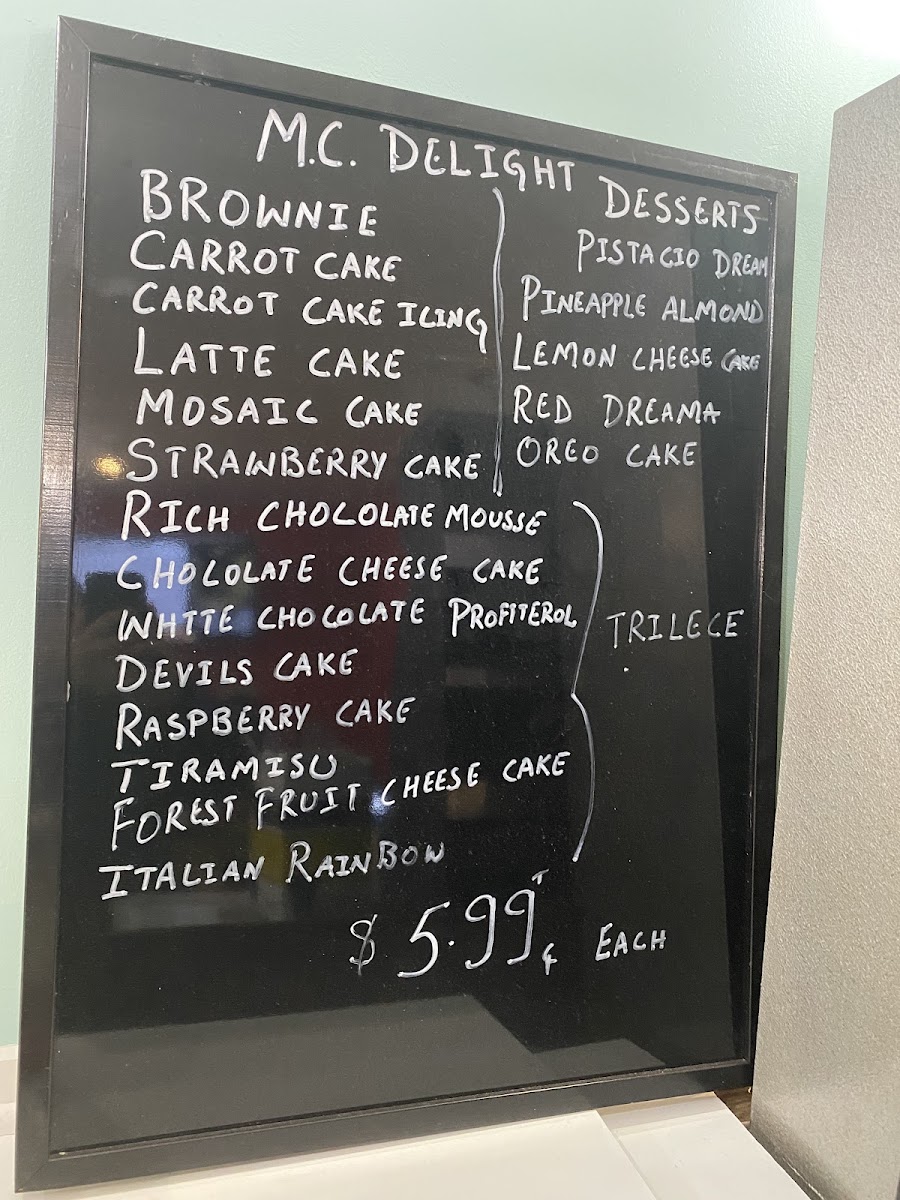 M.C. DELIGHT DESSERTS
BROWNIE
CARROT CAKE
CARROT CAKE ICING
LATTE CAKE
MOSAIC CAKE
STRAWBERRY CAKE
RICH CHOCOLATE MOUSSE
CHOCOLATE CHEESE CAKE
WHITE CHOCOLATE PROFITEROL
DEVILS CAKE
RASPBERRY CAKE
TIRAMISU
FOREST FRUIT CHEESE CAKE
ITALIAN RAINBOW
PISTACIO DREAM
PINEAPPLE ALMOND
LEMON CHEESE CAKE
RED DREAMA
OREO CAKE
TRILECE
$ 5.99 +T EACH